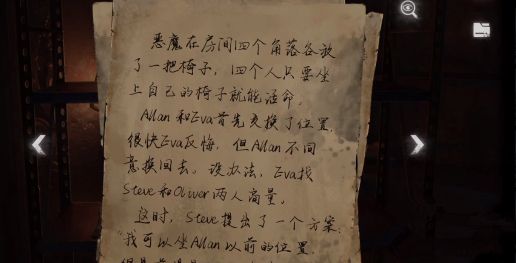 恶魔在房间四个角落各放
了一把椅子，四个人只要坐
上自己的椅子就能活命。
Allan和Eva首先交换了位置，
很快Eva反悔，但Allan不同
意换回去。没办法，Eva找
Steve和Oliver两人商量。
这时，Steve提出了一个方案：
“我可以坐Allan以前的位置，